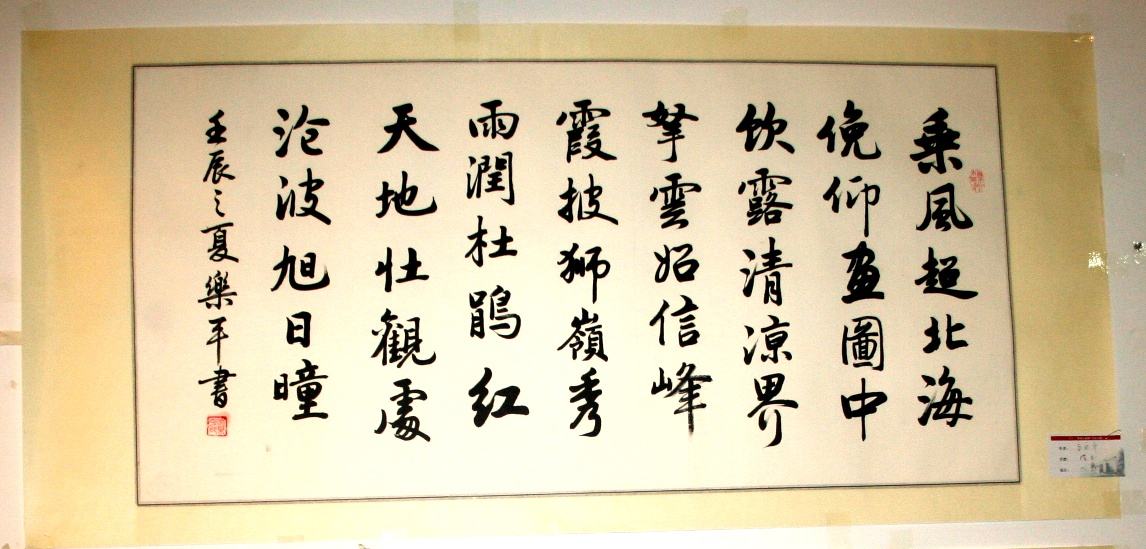 乘風超北海
俛仰画圖中
飲露清涼界
拏雲始信峰
霞披狮嶺秀
雨潤杜鹃红
天地壮觀處
沧波旭日瞳
壬辰之夏樂平書